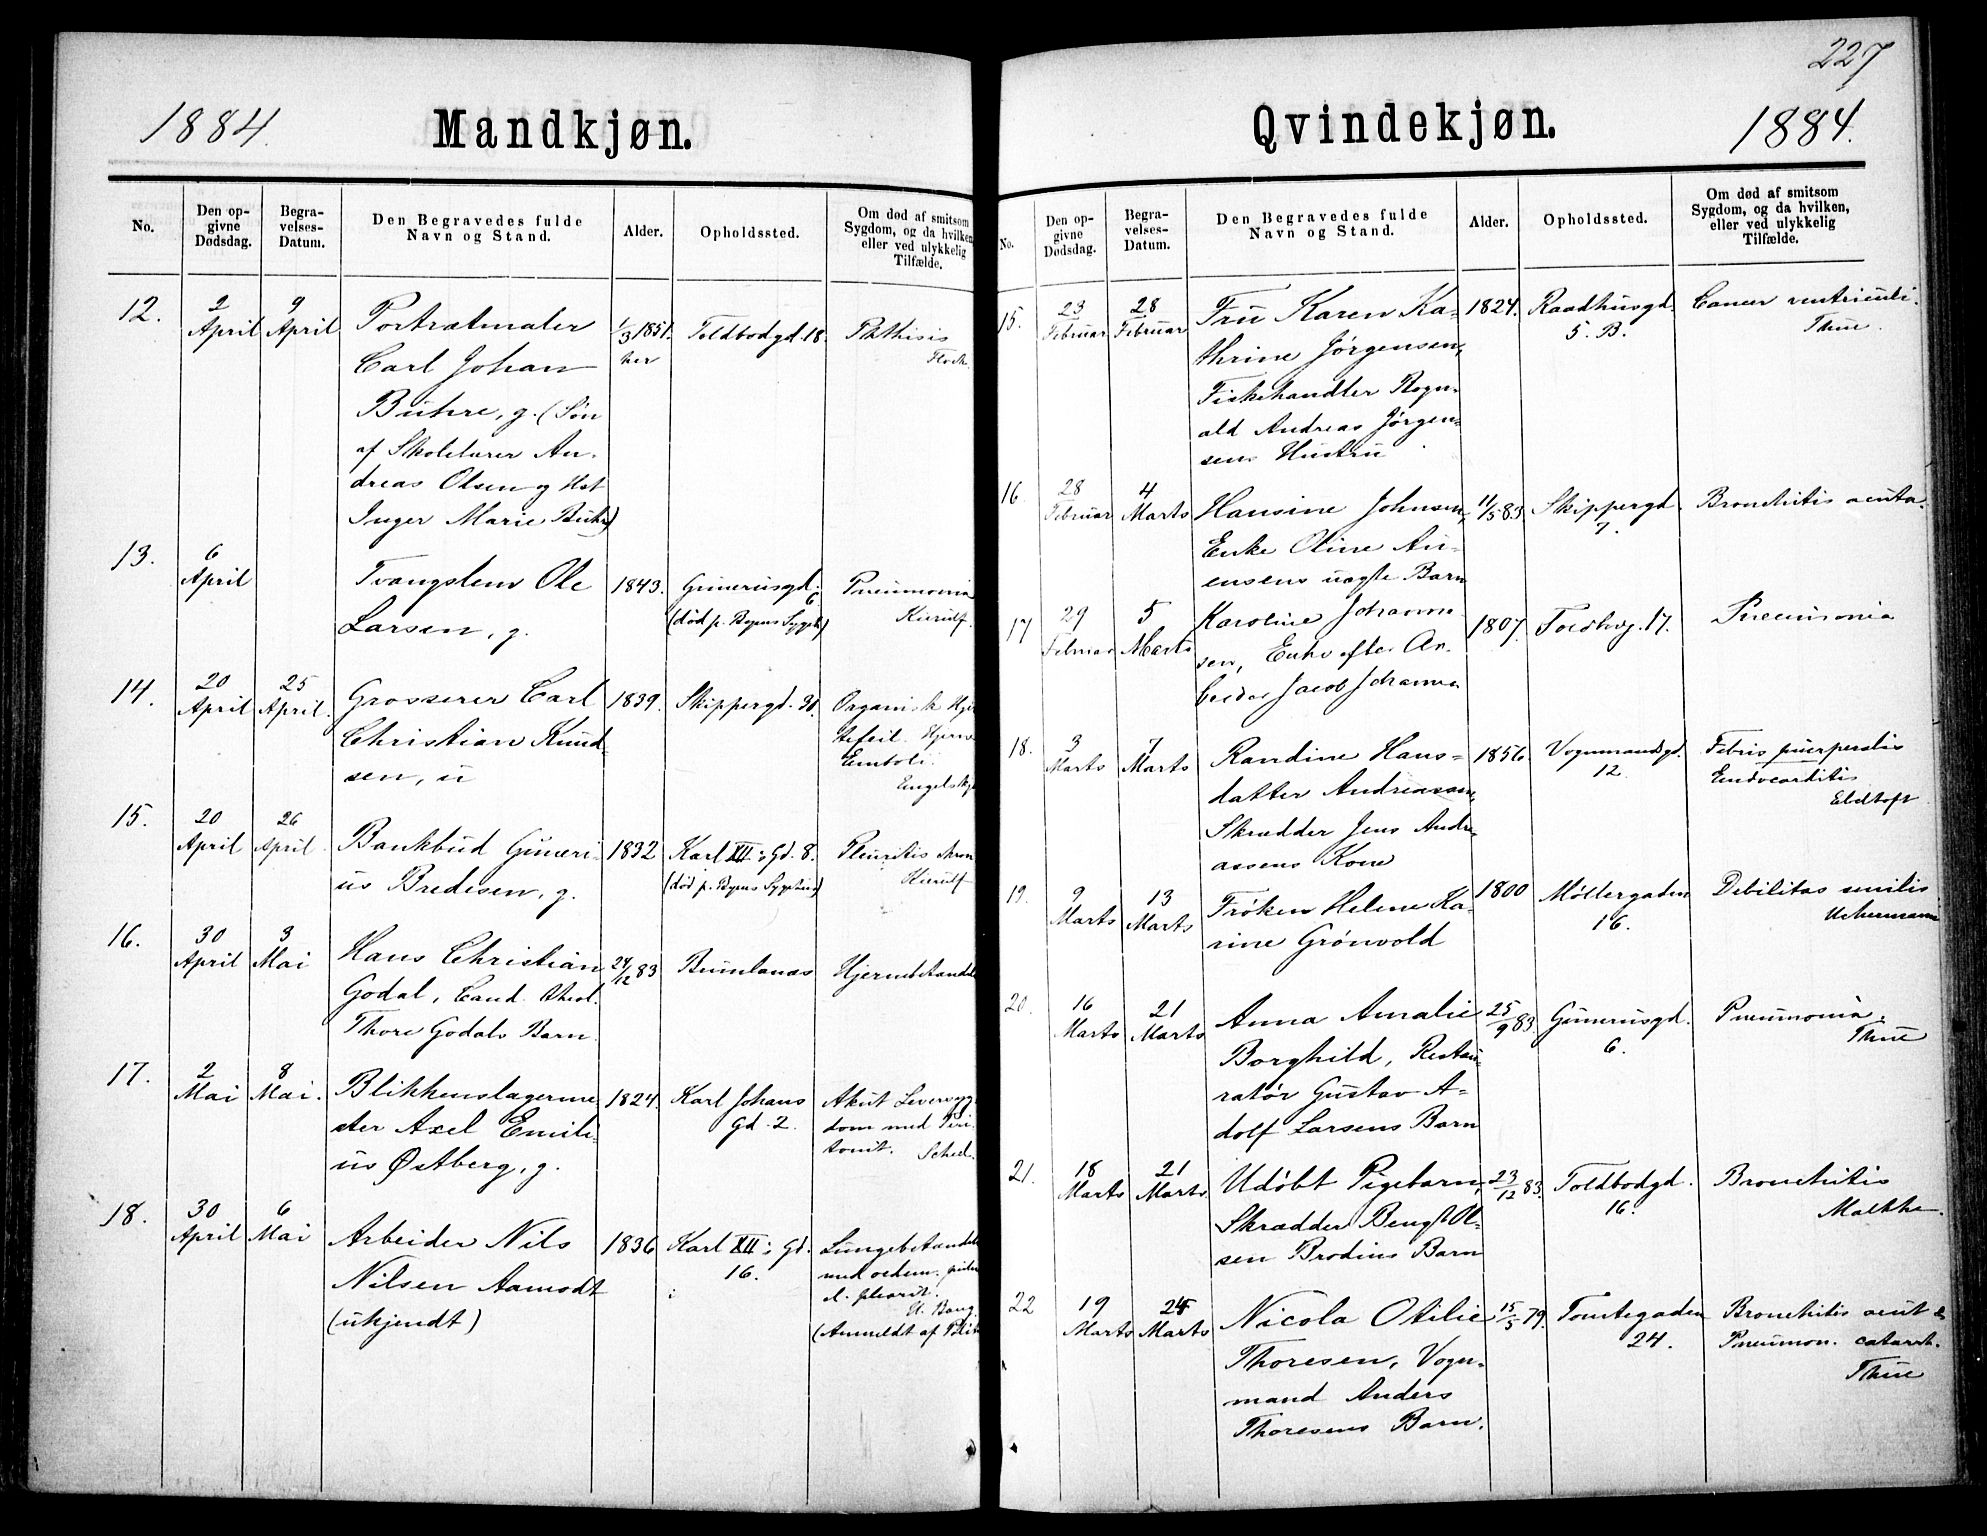 1884.
Mandkjøn.
No.
Den op-
givne
Dødsdag.
Begra-
velses-
Datum.
Den Begravedes fulde
Navn og Stand.
Alder.
Opholdssted.
Om død af smitsom
Sygdom, og da hvilken
eller ved ulykkelig
Tilfælde.
12.
2
April
9
April
Portrætmaler
Carl Johan
Buhre, g. (Søn
af Skolelærer An-
dreas Olsen og Hst
Inger Marie Buhre)
1/3 1851.
her
Toldbodgd. 18.
Phthisis
13.
6
April
Tvangslem Ole
Larsen, g.
1843.
Grünerusgd.
6
(død p. Byens Sygeh)
Pneumonia
Kierulf
14.
20
April
25
April.
Grosserer Carl
Christian Knud-
sen, u
1839.
Skippergd. 30.
Organisk Hjer
tefeil. Hjerne
Emboli.
Engelskj
15.
20
April
26
April.
Bankbud Guneri-
us Bredesen, g.
1832
Karl XII: Gd. 8.
(død p. Byens Sygehus)
Pleuritis chron
Kierulf
16.
30
April
3
Mai
Hans Christian
Godal, Cand. theol.
Thore Godals Barn.
24/12 83
Bumlanæs
Hjernebetænd
17.
2
Mai
8
Mai.
Blikkenslagerme
ster Axel Emili-
us Østberg, g.
1824.
Karl Johans
Gd. 2.
Akut Leversyg-
dom med Peri-
tonit. Sched.
18.
30
April
6
Mai
Arbeider Nils
Nilsen Aamodt
(ukjendt)
1836
Karl XII: Gd.
16.
Lungebetændel
med oedem.
d. pleurit.
E. Bang.
(Anmeldt af Politi
227
Qvindekjøn.
1884.
No.
Den op-
givne
Dødsdag.
Begra-
velses-
Datum.
Den Begravedes fulde
Navn og Stand.
Alder.
Opholdssted.
Om død af smitsom
Sygdom, og da hvilken,
eller ved ulykkelig
Tilfælde.
15.
23
Februar
28
Februar
Fru Karen Ka-
thrine Jørgensen,
Fiskehandler Rogn-
ald Andreas Jørgen-
sens Hustru
1824.
Raadhusgd.
5. B.
Cancer ventriculi.
Thue.
16.
28
Februar
4
Marts
Hansine Johnsen,
Enke Oline An-
ensens uægte Barn
11/5 83
Skippergd.
7.
Bronchitis acuta.
17
29
Februar
5
Marts
Karoline Johanne
sen, Enke efter Ar-
beider Jacob Johanne
1807.
Toldbodg. 17.
Pneumonia
18.
3
Marts
7
Marts
Randine Hans-
datter Andreassen,
Skrædder Jens Andre-
assens Kone
1856.
Vognmandsgd.
12.
Febris puerperalis
Endocarditis
Eldtoft
19.
9
Marts
13
Marts
Frøken Helene Ka-
rine Grønvold
1800
Møllergaden
16.
Debilitas senilis
Uchermann
20.
16
Marts
21
Marts
Anna Amalie
Borghild, Restau-
ratør Gustav A-
dolf Larsens Barn
25/9 83.
Grünerusgd.
6.
Pneumonia.
Thue
21.
18
Marts
21
Marts
Udøbt Pigebarn,
Skrædder Bengt Ol-
sen Brodins Barn
23/12 83.
Toldbodgd.
16.
Bronchitis
Malthe.
22
19
Marts
25
Marts
Nicola Otilie
Thoresen, Vogn-
mand Anders
Thoresens Barn.
15/5 79.
Tomtegaden
24.
Bronchitis acut &
Pneumon. catarrh.
Thue